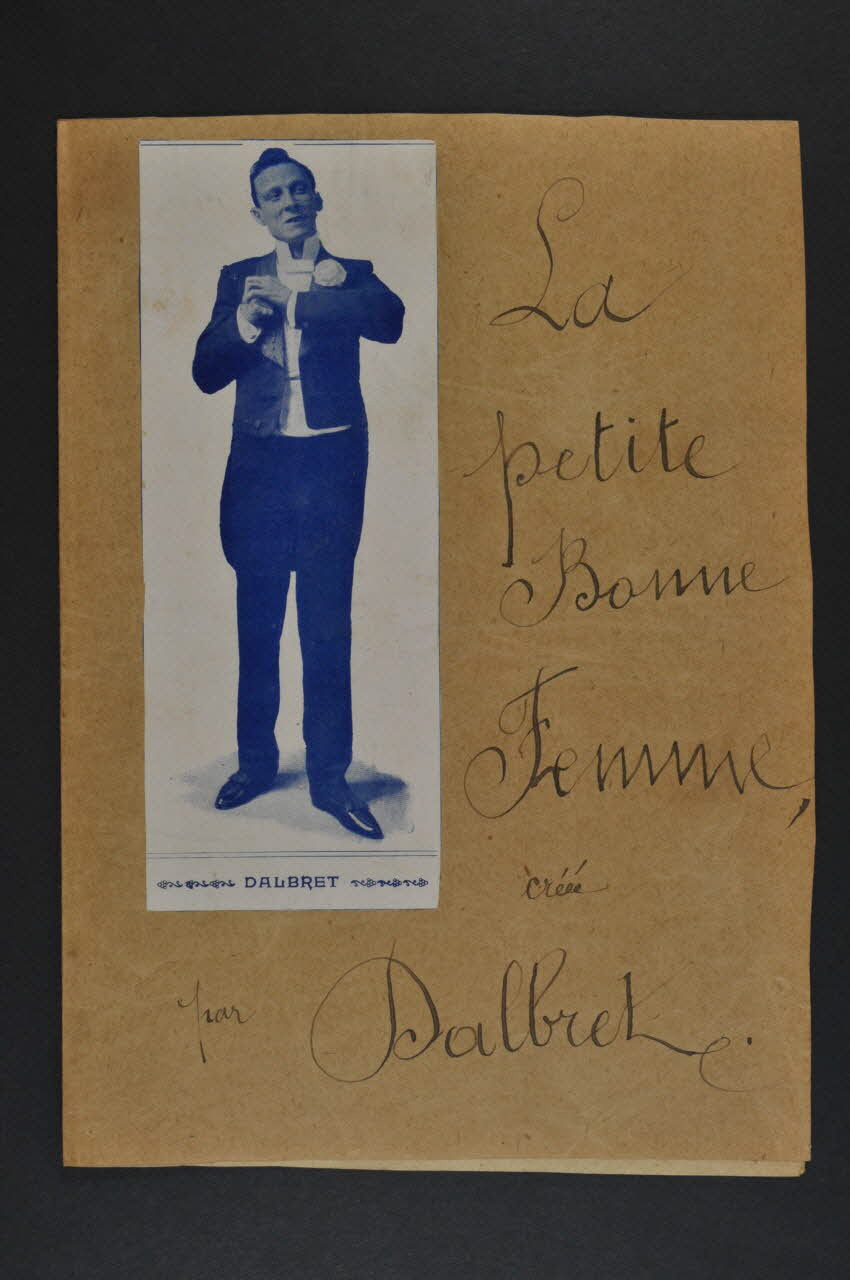 La
petite
Bonne
Femme,
DALBRET
créée
par Dalbret.